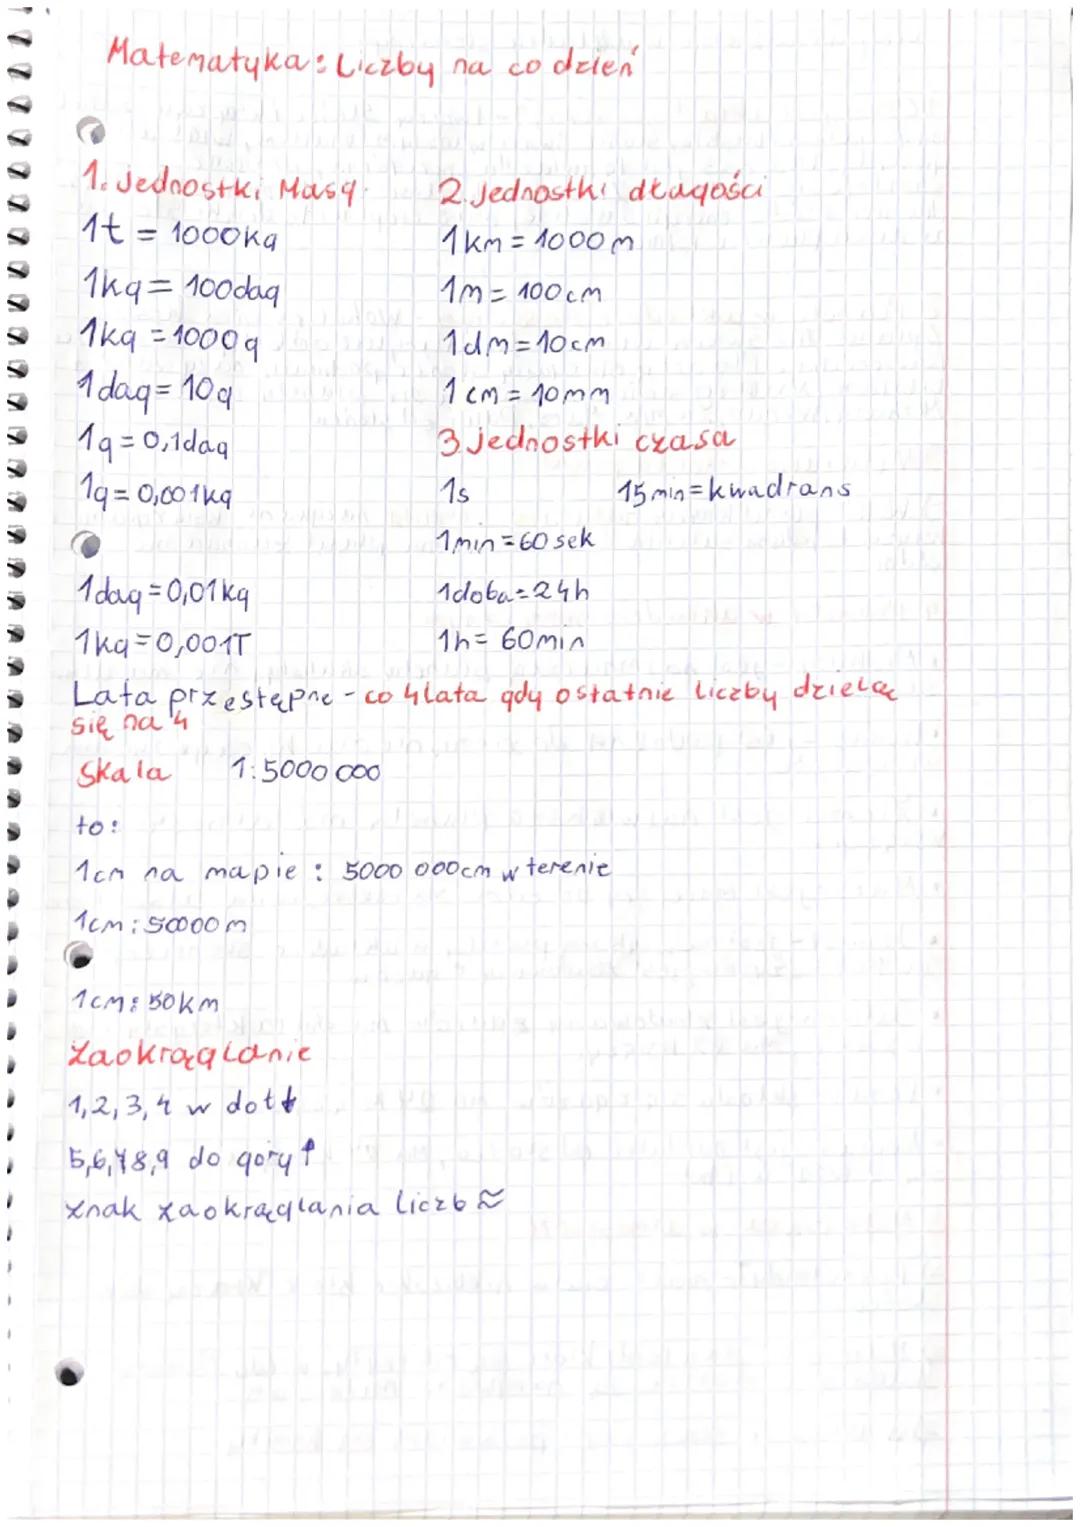 Matematyka: Liczby na co dzień
1. Jednostki Masy
1t = 1000kg
1kg = 100dag
1kg = 1000g
1dag = 10g
1g = 0,1dag
1g = 0,001kg
1dag = 0,01kg
1kg = 0,001T
2. Jednostki długości
1km = 1000m
1m = 100cm
1dm = 10cm
1cm = 10mm
3. Jednostki czasu
1s 15min = kwadrans
1min = 60 sek
1doba = 24h
1h = 60min
Lata przestępne - co 4 lata gdy ostatnie liczby dzielą
się na 4
Skala 1:5000 000
to:
1cm na mapie : 5000 000cm w terenie
1cm : 50000m
1cm : 50km
Zaokrąglanie
1,2,3,4 w dół ↓
5,6,7,8,9 do góry ↑
Znak zaokrąglania liczb ≈